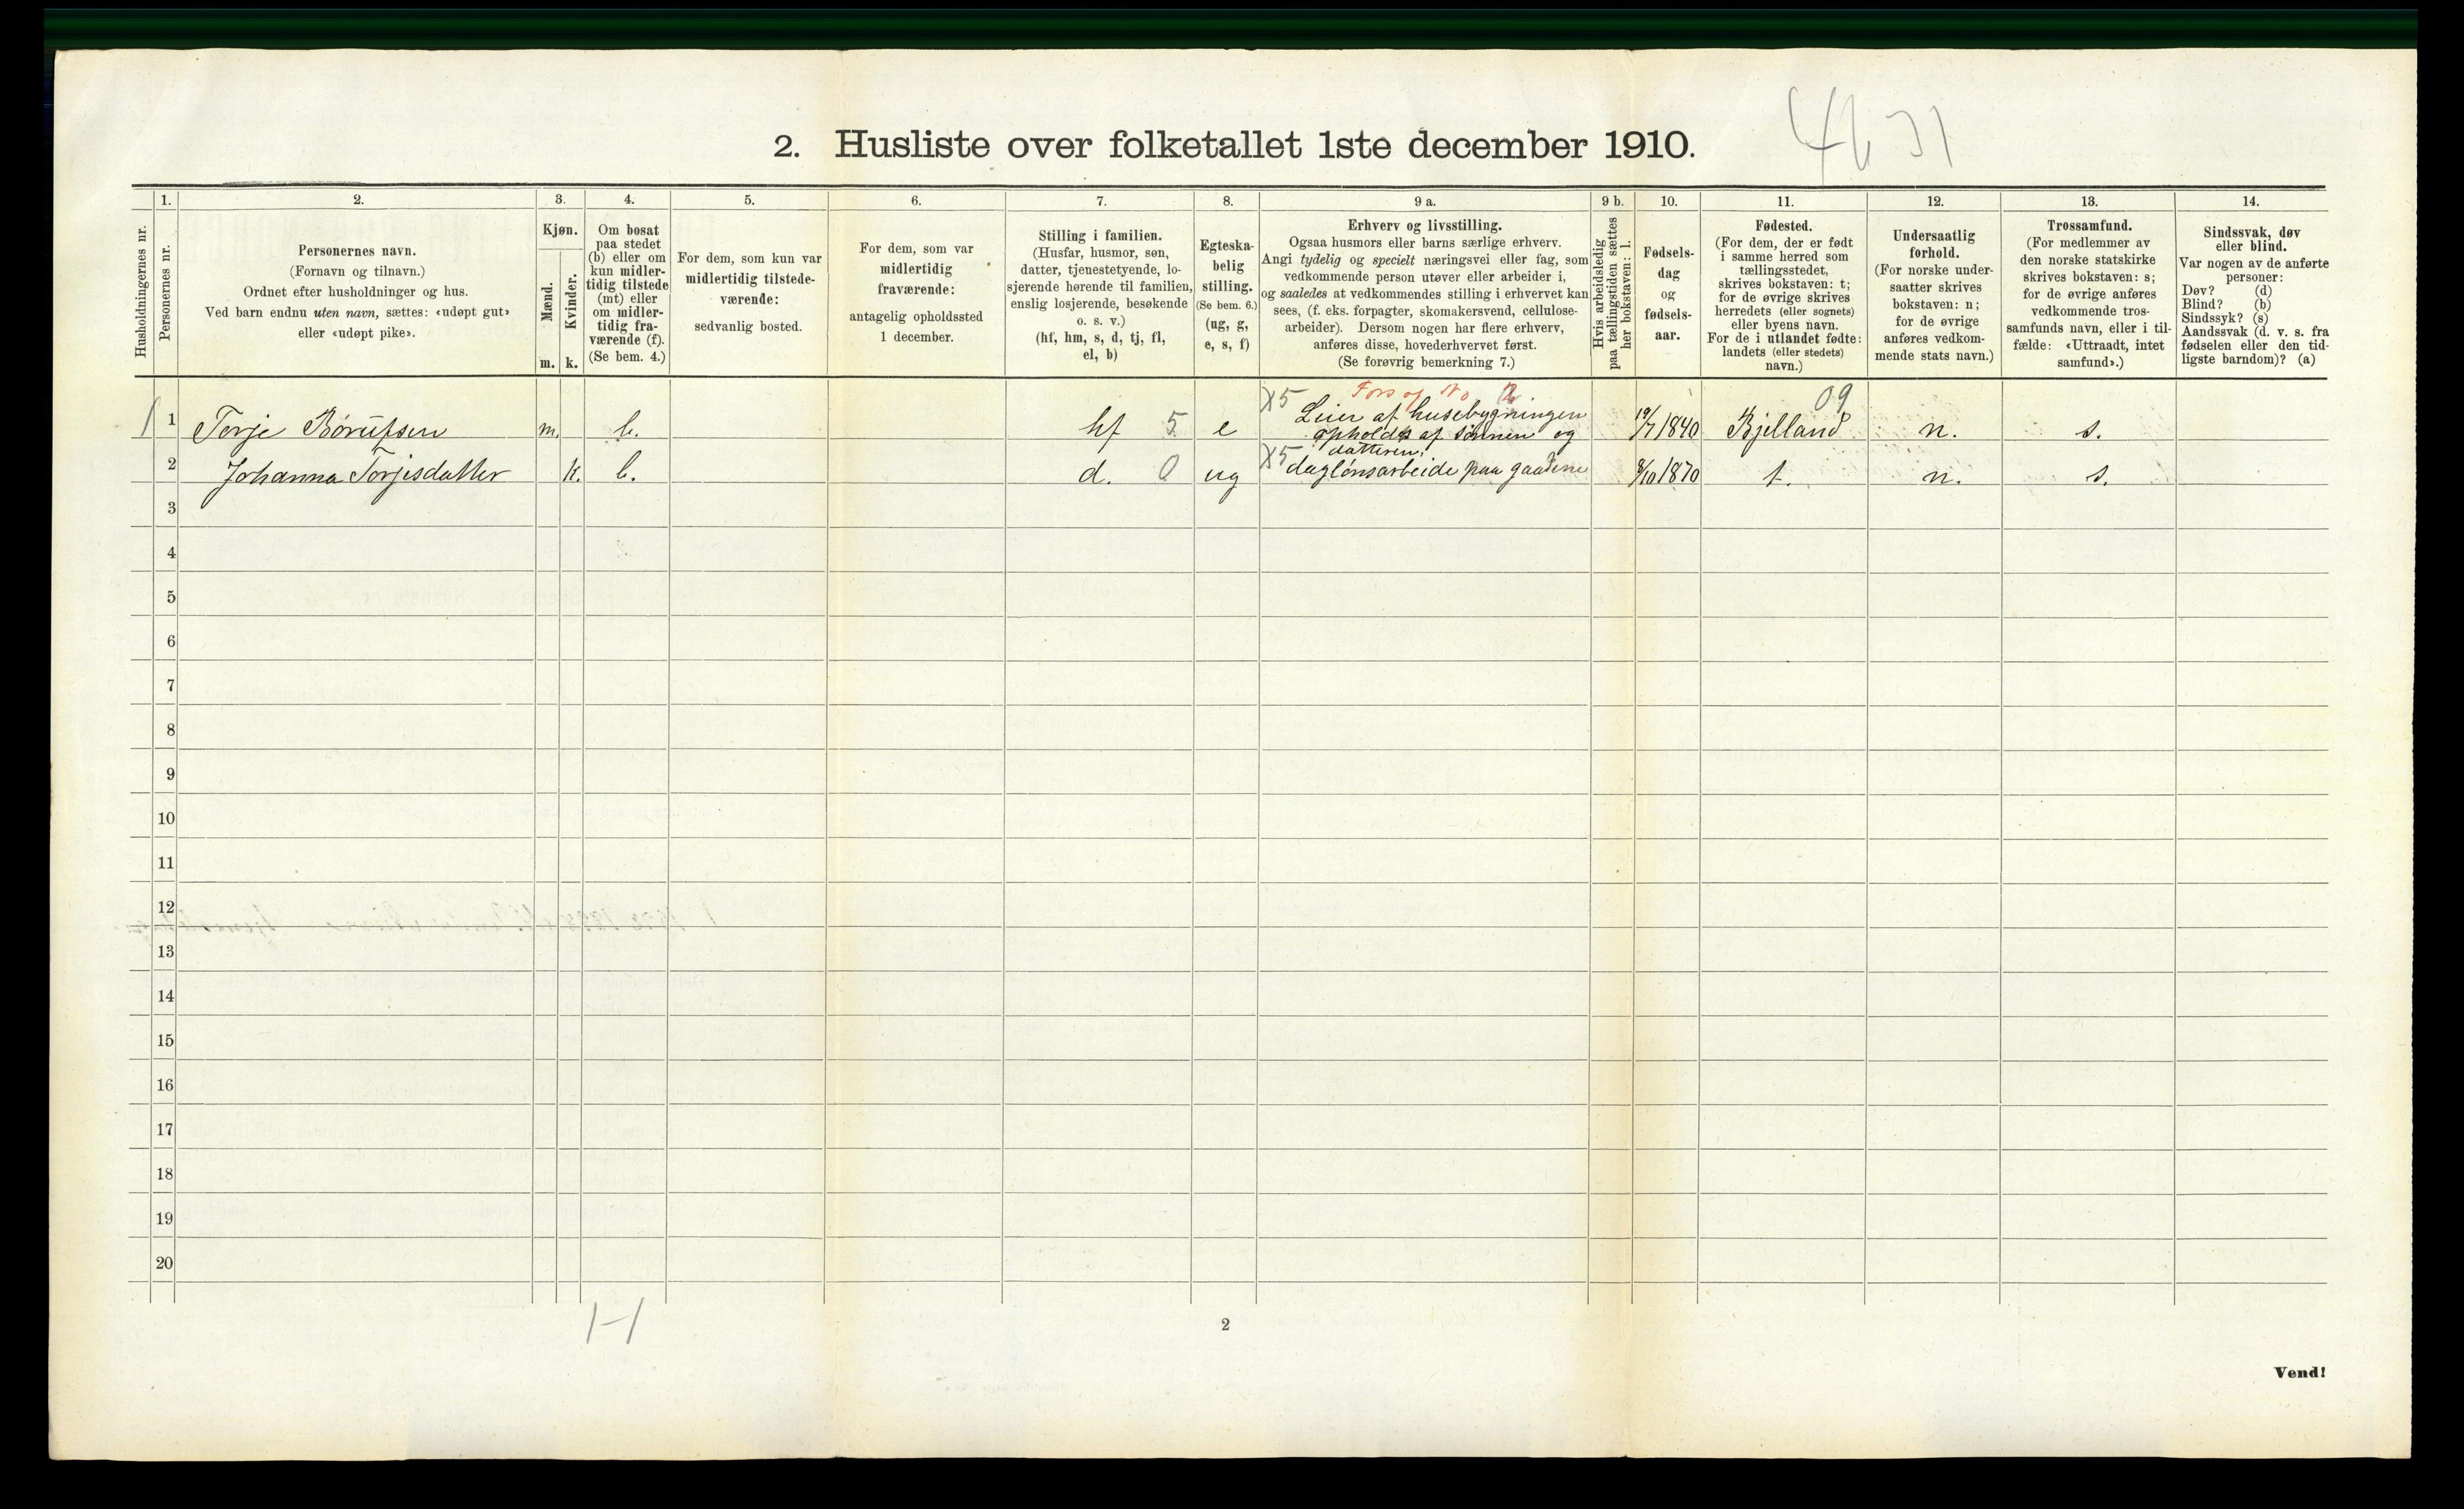 2. Husliste over folketallet 1ste december 1910.
Husholdningernes nr.
1.
Personernes nr.
2.
Personernes navn.
(Fornavn og tilnavn.)
Ordnet efter husholdninger og hus.
Ved barn endnu uten navn, sættes: «udøpt gut»
eller «udøpt pike».
3.
Kjøn.
Mænd.
Kvinder.
m. k.
4.
Om bosat
paa stedet
(b) eller om
kun midler-
tidig tilstede
(mt) eller
om midler-
tidig fra-
værende (f).
(Se bem. 4.)
5.
For dem, som kun var
midlertidig tilstede-
værende:
sedvanlig bosted.
6.
For dem, som var
midlertidig
fraværende:
antagelig opholdssted
1 december.
7.
Stilling i familien.
(Husfar, husmor, søn,
datter, tjenestetyende, lo-
sjerende hørende til familien,
enslig losjerende, besøkende
o. s. v.)
(hf, hm, s, d, tj, fl,
el, b)
8.
Egteska-
belig
stilling.
(Se bem. 6.)
(ug, g,
e, s, f)
9 a.
Erhverv og livsstilling.
Ogsaa husmors eller barns særlige erhverv.
Angi tydelig og specielt næringsvei eller fag, som
vedkommende person utøver eller arbeider i,
og saaledes at vedkommendes stilling i erhvervet kan
sees, (f. eks. forpagter, skomakersvend, cellulose-
arbeider). Dersom nogen har flere erhverv,
anføres disse, hovederhvervet først.
(Se forøvrig bemerkning 7.)
9 b.
Hvis arbeidsledig
paa tællingstiden sættes
her bokstaven: l.
10.
Fødsels-
dag
og
fødsels-
aar.
11.
Fødested.
(For dem, der er født
i samme herred som
tællingsstedet,
skrives bokstaven: t;
for de øvrige skrives
herredets (eller sognets)
eller byens navn.
For de i utlandet fødte:
landets (eller stedets)
navn.)
12.
Undersaatlig
forhold.
(For norske under-
saatter skrives
bokstaven: n;
for de øvrige
anføres vedkom-
mende stats navn.)
13.
Trossamfund.
(For medlemmer av
den norske statskirke
skrives bokstaven: s;
for de øvrige anføres
vedkommende tros-
samfunds navn, eller i til-
fælde: «Uttraadt, intet
samfund».)
14.
Sindssvak, døv
eller blind.
Var nogen av de anførte
personer:
Døv? (d)
Blind? (b)
Sindssyk? (s)
Aandssvak (d. v. s. fra
fødselen eller den tid-
ligste barndom)? (a)
X5 Fors af No 2 09
1 1 Torje Børufsen m. b. hf 5 e Leier af husebygningen 19/7 1840 Bjelland n. s.
opholdes af sønnen og
datteren.
2 Johanna Torjesdatter k. b. d. 0 ug X5 daglønsarbeide paa gaardene 8/10 1870 t. n. s.
3
4
5
6
7
8
9
10
11
12
13
14
15
16
17
18
19
20
1-1
2
Vend!